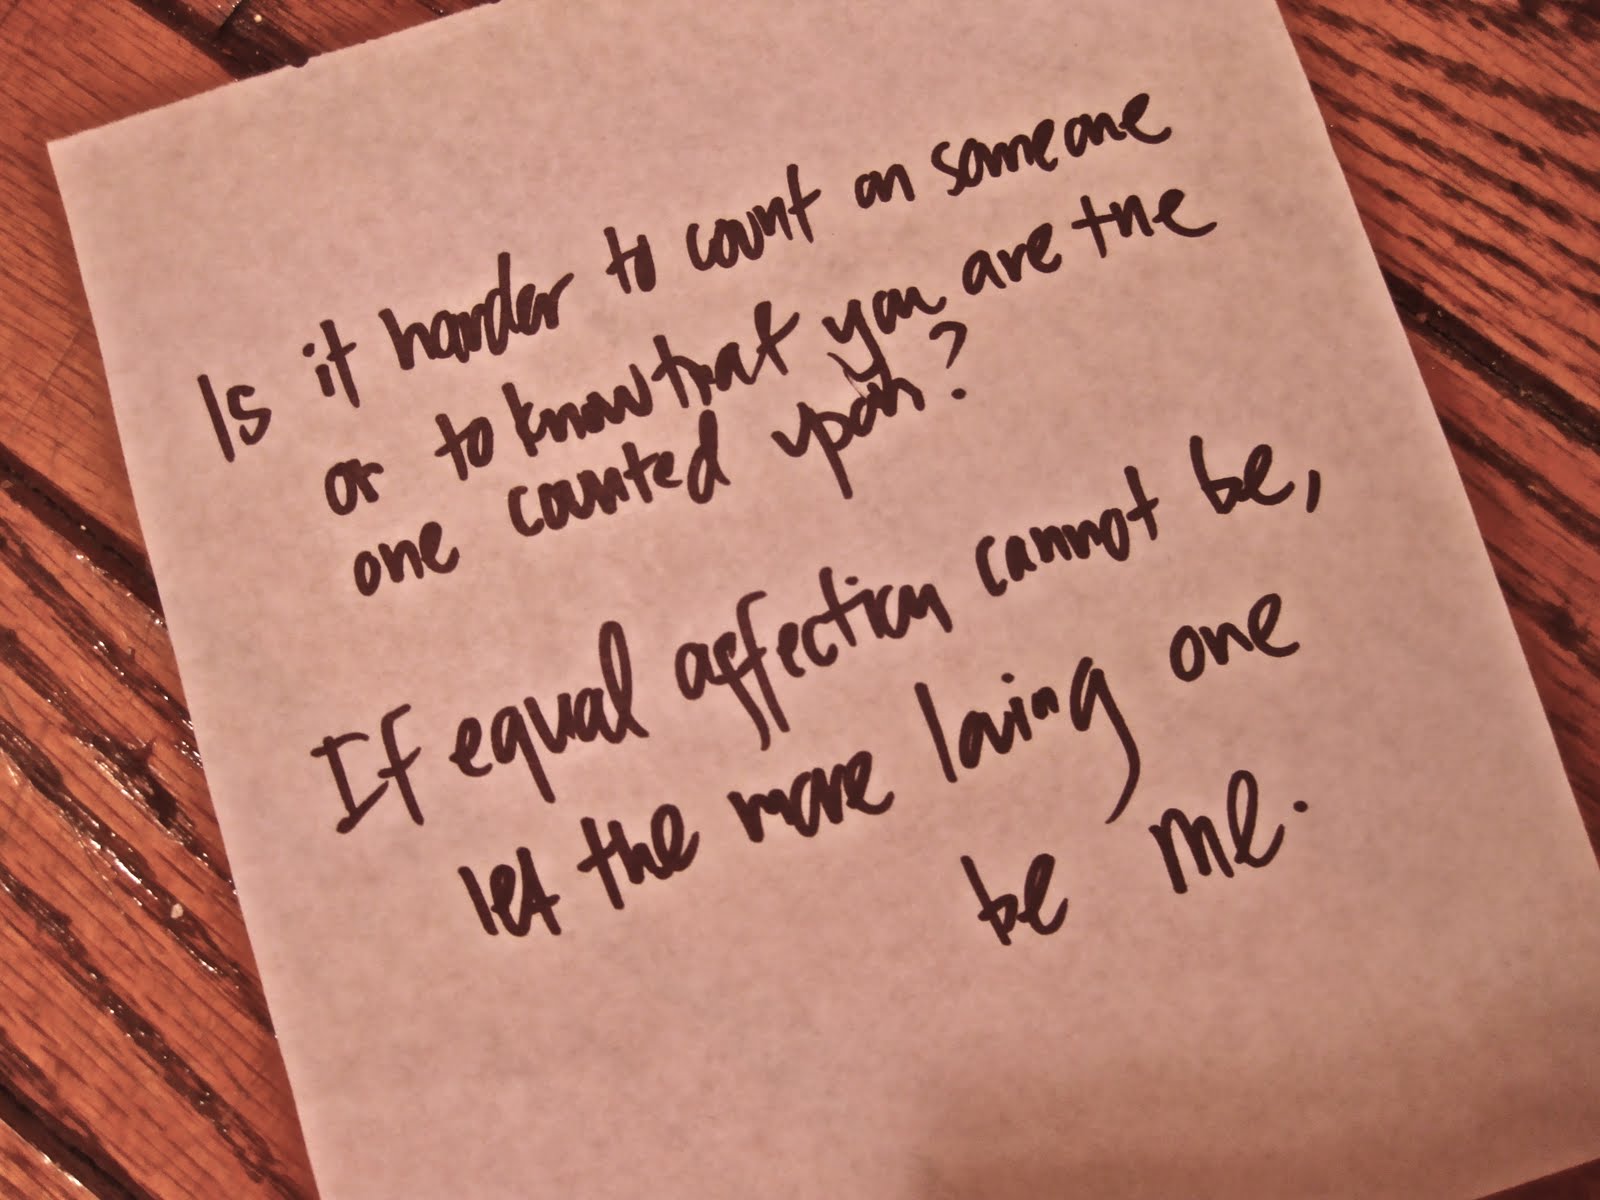 Is it harder to count on someone
or to know that you are the
one counted upon?
If equal affection cannot be,
let the more loving one
be me.